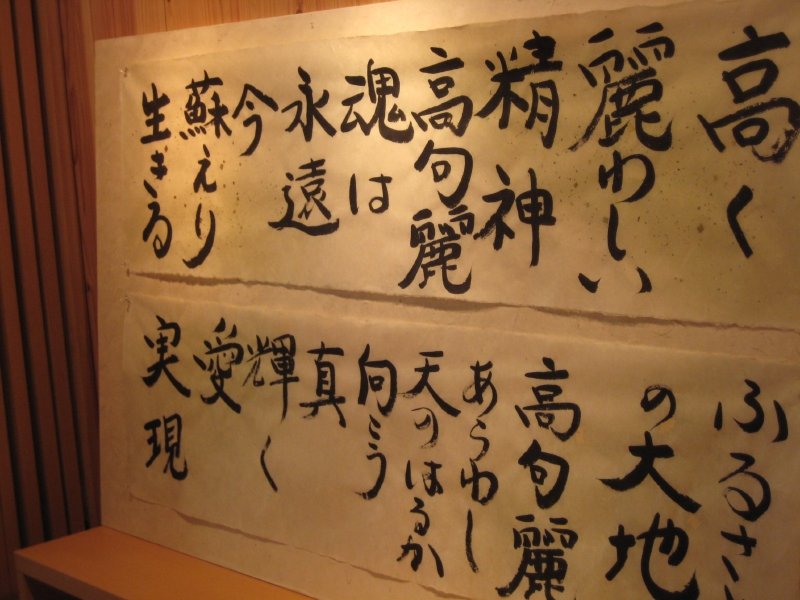 高く
麗わしい
精神
高句麗
魂は
永遠
今
蘇えり
生きる
ふるさ
の大地
高句麗
あらわし
天のはるか
向こう
真
輝く
愛
実現